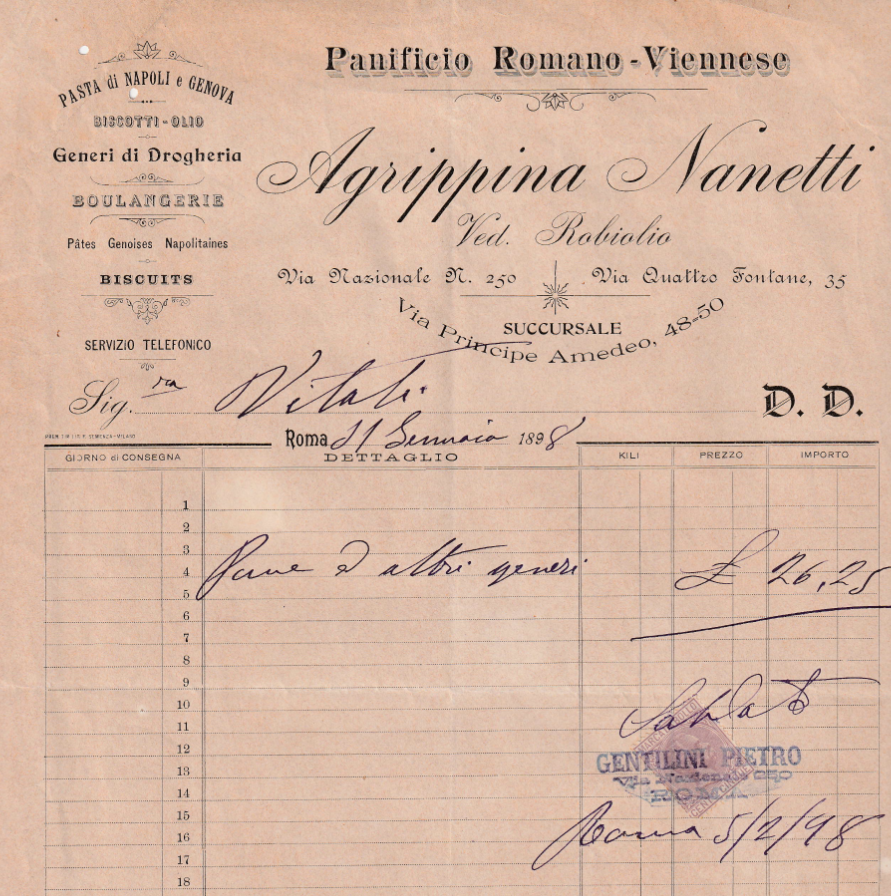 Panificio Romano-Viennese
PASTA di NAPOLI e GENOVA
BISCOTTI-OLIO
Generi di Drogheria
BOULANGERIE
Pâtes Genoises Napolitaines
BISCUITS
SERVIZIO TELEFONICO
Agrippina Nanetti
Ved. Robiolio
Via Nazionale N. 250 Via Quattro Fontane, 35
SUCCURSALE
Via Principe Amedeo, 48-50
Sig.ra Vitali D. D.
Roma 31 Gennaio 1898
GIORNO di CONSEGNA DETTAGLIO KILI PREZZO IMPORTO
1
2
3
4 Pane ed altri generi £ 26,25
5
6
7
8
9
10 Saldato
11
12 GENTILINI PIETRO
13 Via Nazionale 250
14 ROMA
15
16 Roma 5/2/98
17
18